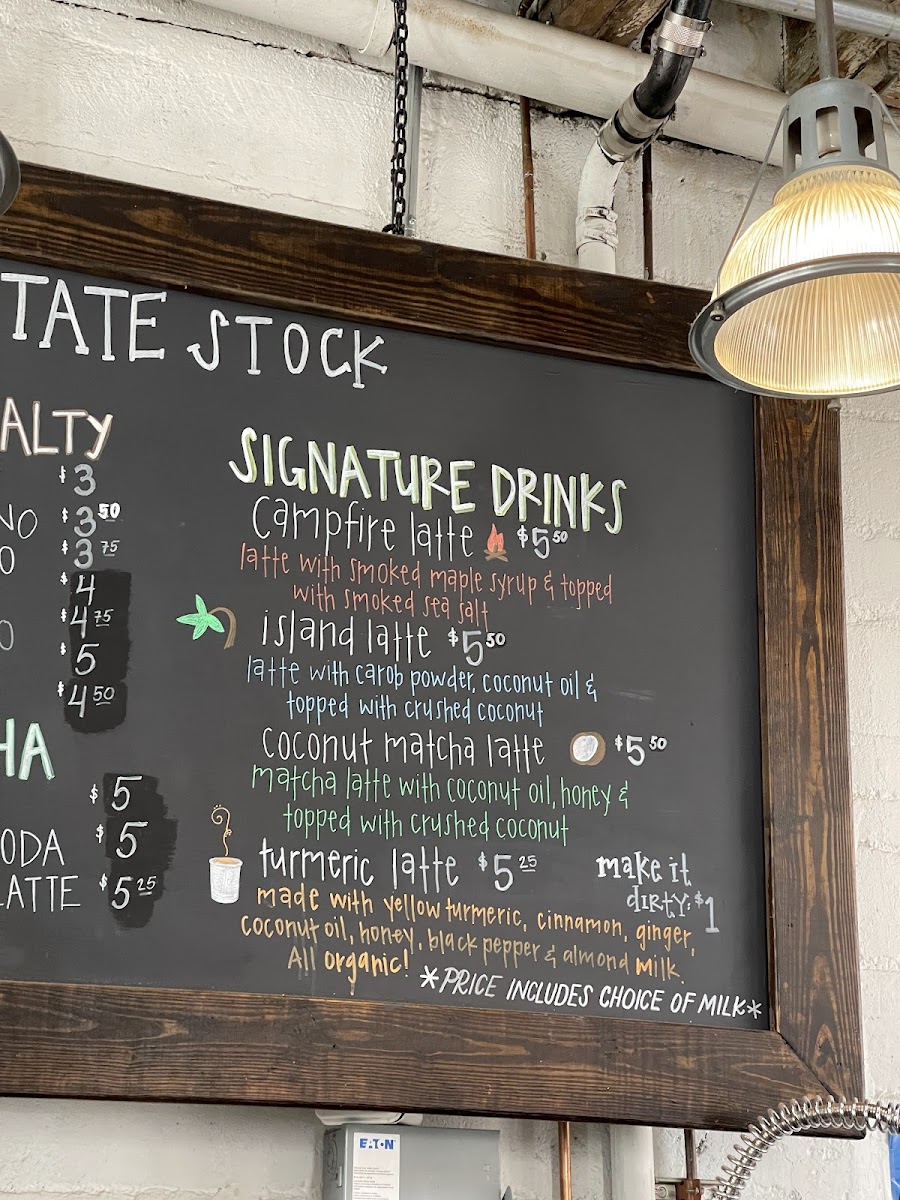 TATE STOCK
ALTY
$3
NO $3.50
O $3.75
$4
O $4.75
$5
$4.50
HA
$5
ODA $5
LATTE $5.25
SIGNATURE DRINKS
campfire latte $5.50
latte with smoked maple syrup & topped
with smoked sea salt
island latte $5.50
latte with carob powder, coconut oil &
topped with crushed coconut
coconut matcha latte $5.50
matcha latte with coconut oil, honey &
topped with crushed coconut
turmeric latte $5.25
made with yellow turmeric, cinnamon, ginger,
coconut oil, honey, black pepper & almond milk.
All organic!
make it
dirty: $1
*PRICE INCLUDES CHOICE OF MILK*
EATON